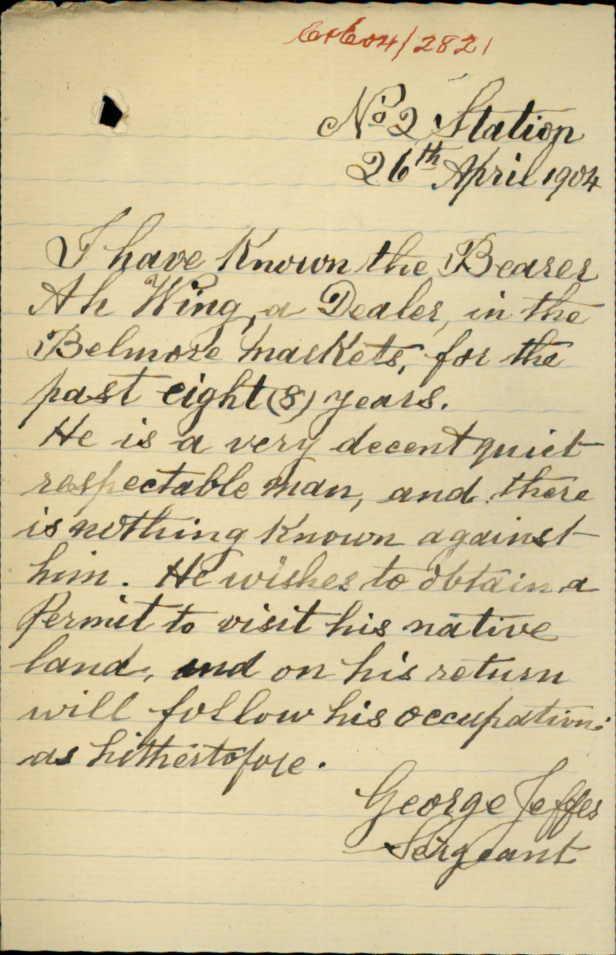 C+E04/2821
No 2 Station
26th April 1904
I have Known the Bearer
Ah Wing, a Dealer, in the
Belmore markets, for the
past eight (8) years.
He is a very decent quiet
respectable man, and there
is nothing Known against
him. He wishes to obtain a
Permit to visit his native
land, and on his return
will follow his occupation:
as hithertofore.
George Jeffes
Sergeant